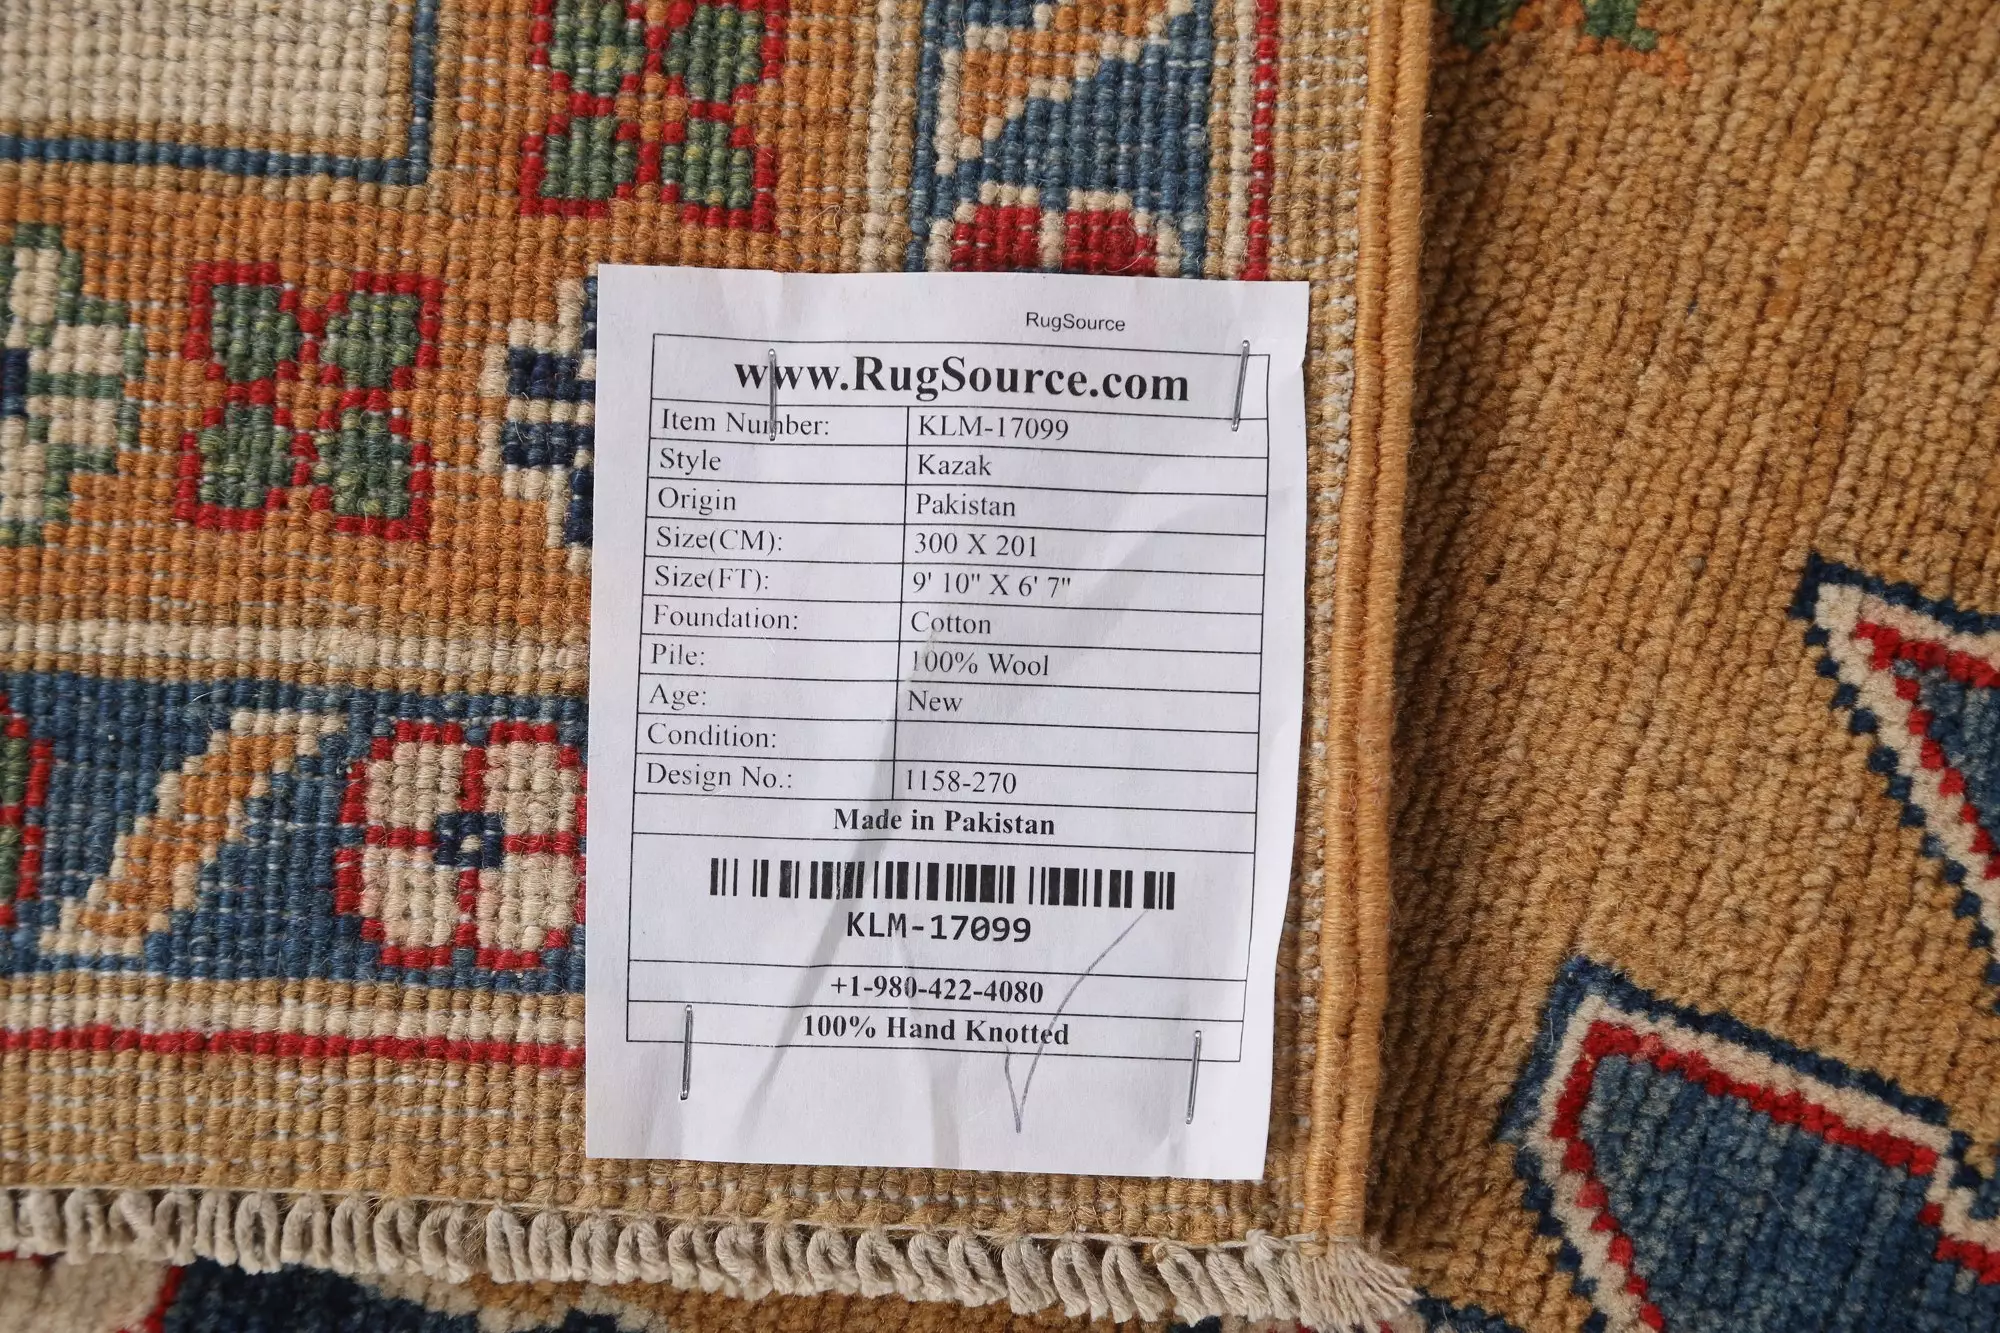 RugSource
www.RugSource.com
Item Number: KLM-17099
Style Kazak
Origin Pakistan
Size(CM): 300 X 201
Size(FT): 9' 10" X 6' 7"
Foundation: Cotton
Pile: 100% Wool
Age: New
Condition:
Design No.: 1158-270
Made in Pakistan
KLM-17099
+1-980-422-4080
100% Hand Knotted